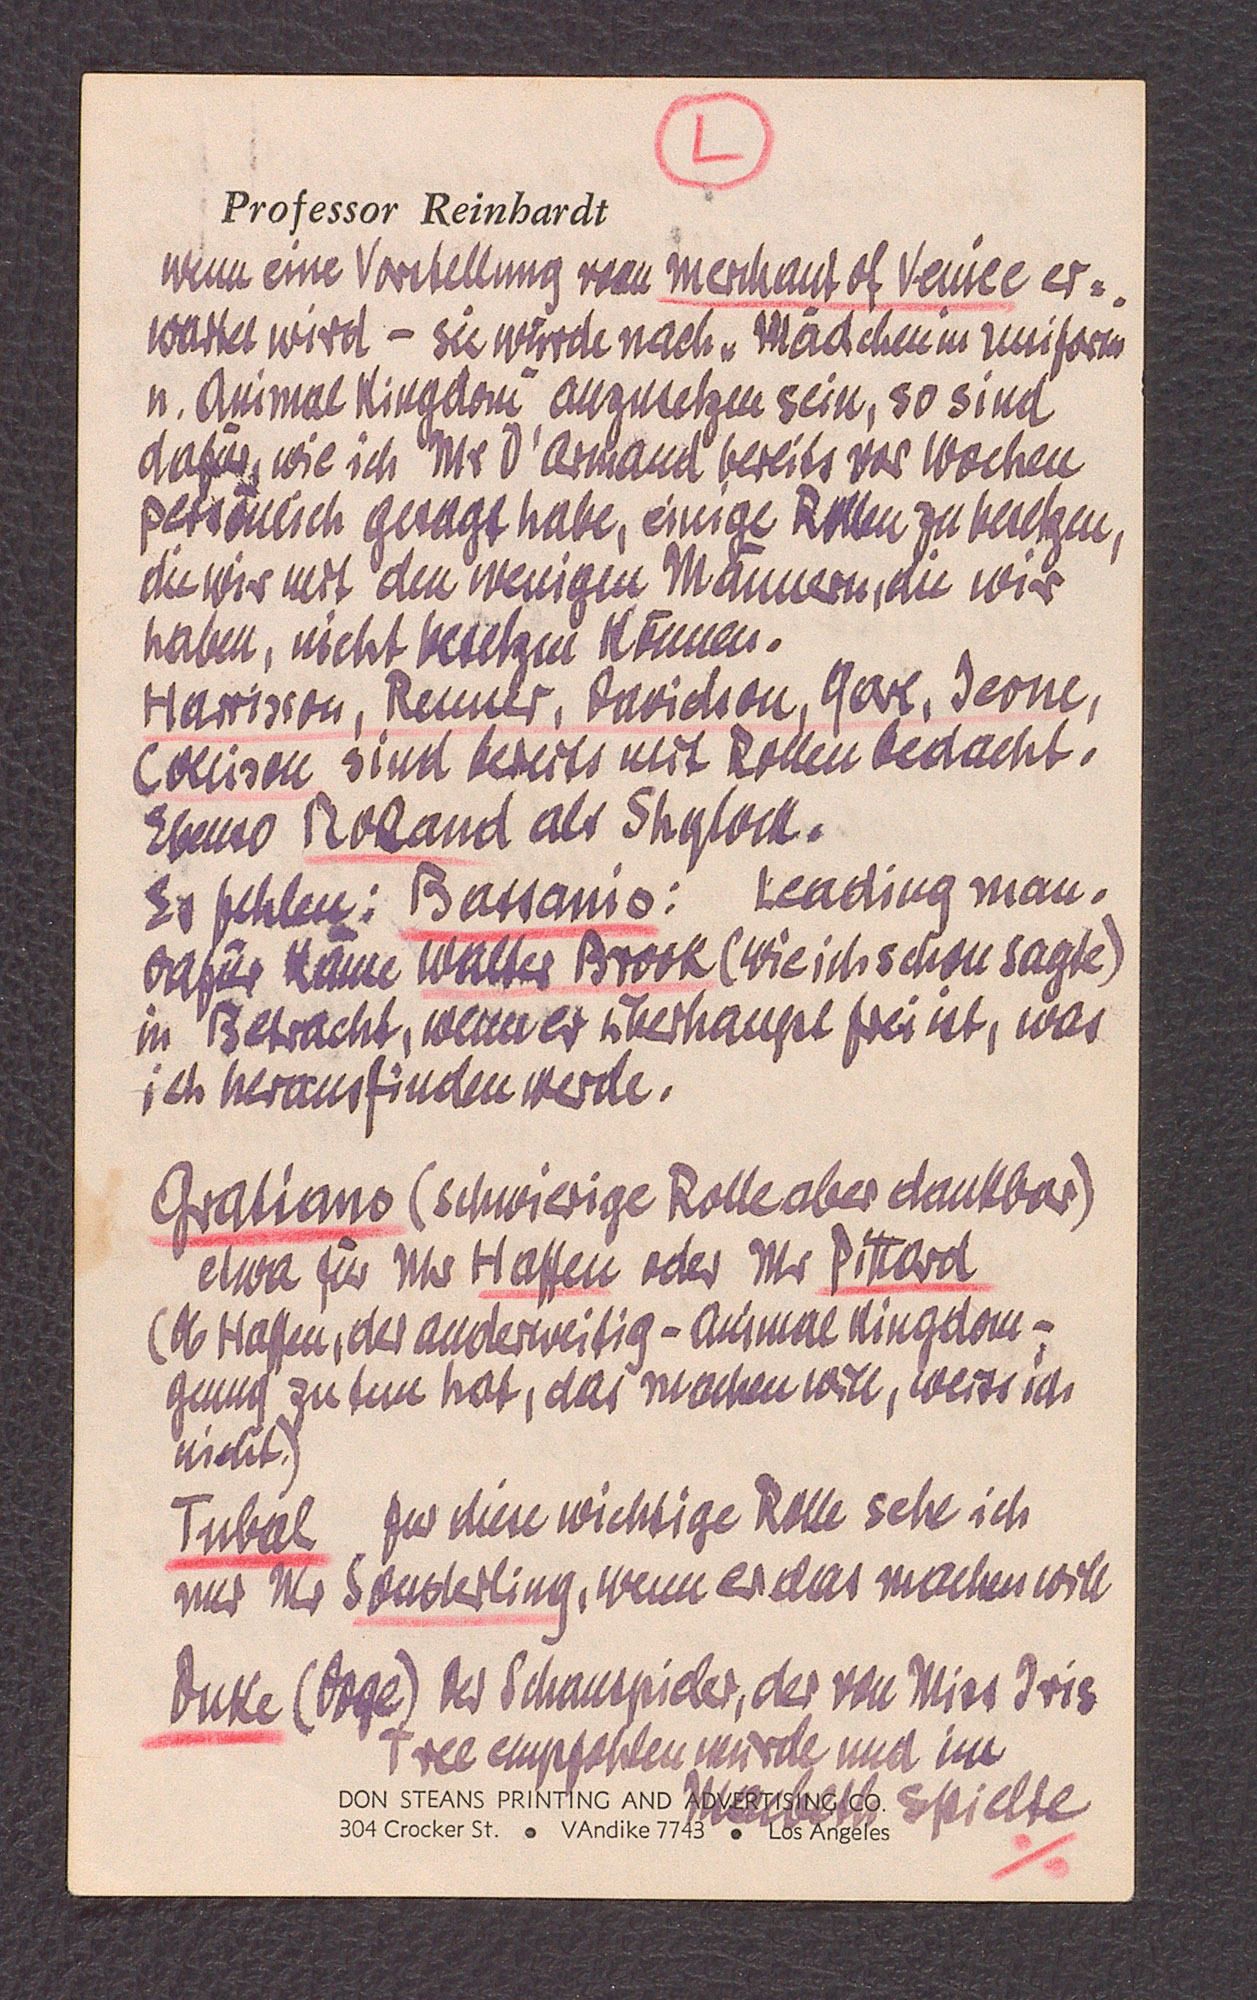 L
Professor Reinhardt
wenn eine Vorstellung von Merchant of Venice er=
wartet wird – sie würde nach „Mädchen in Uniform
u. Animal Kingdom" anzusetzen sein, so sind
dafür, wie ich Mr D'Armand bereits vor Wochen
persönlich gesagt habe, einige Rollen zu besetzen,
die wir mit den wenigen Männern, die wir
haben, nicht besetzen können.
Harrisson, Renner, Davidson, Jerone,
Collison sind bereits mit Rollen bedacht.
Ebenso Roland als Shylock.
Es fehlen: Bassanio: Leading man.
Dafür käme Walter Brook (wie ich schon sagte)
in Betracht, wenn er überhaupt frei ist, was
ich herausfinden werde.
Gratiano (schwierige Rolle aber dankbar)
etwa für Mr Haffen oder Mr Pittard
(Ob Haffen, der anderweitig – Animal Kingdom –
genug zu tun hat, das machen will, weiss ich
nicht.)
Tubal für diese wichtige Rolle sehe ich
nur Mr Sonderling, wenn er das machen will
Duke (Doge) Der Schauspieler, der von Miss Iris
Tree empfohlen wurde und im
Macbeth spielte
DON STEANS PRINTING AND ADVERTISING CO.
304 Crocker St. • VAndike 7743 • Los Angeles
./.